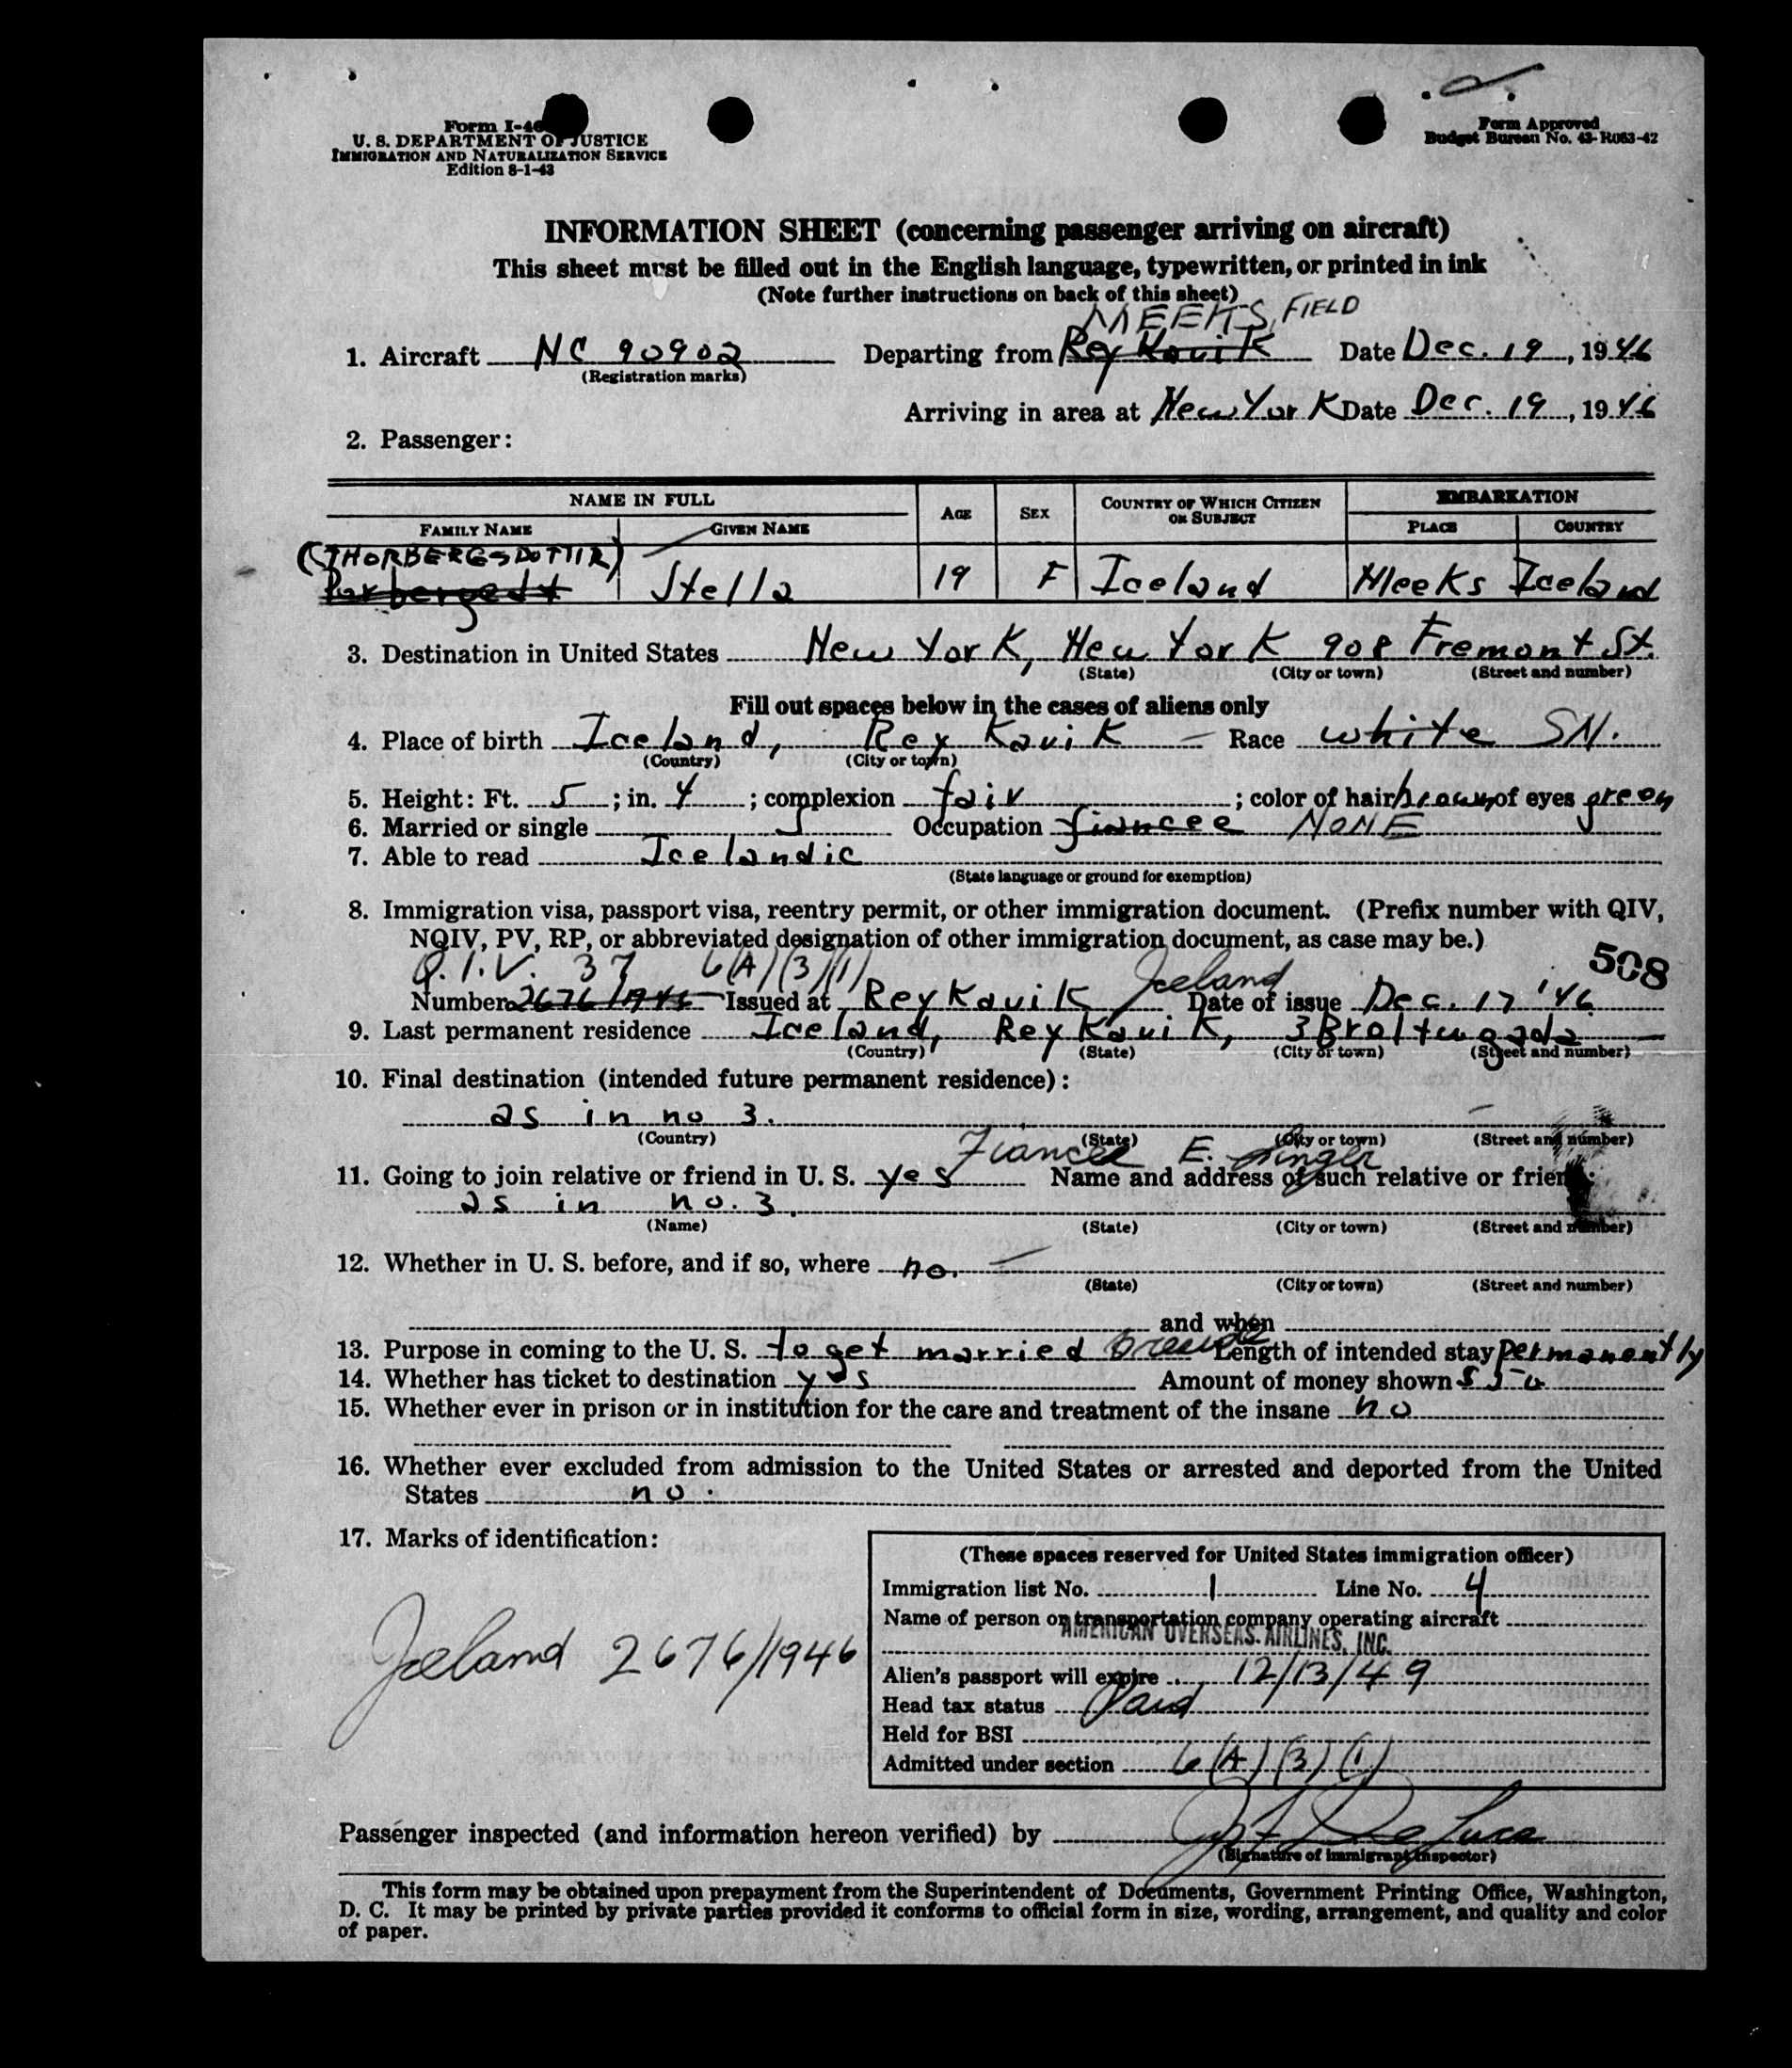 Form I-46
U. S. DEPARTMENT OF JUSTICE
IMMIGRATION AND NATURALIZATION SERVICE
Edition 8-1-43
Form Approved
Budget Bureau No. 43-R063-42
INFORMATION SHEET (concerning passenger arriving on aircraft)
This sheet must be filled out in the English language, typewritten, or printed in ink
(Note further instructions on back of this sheet)
MEEKS FIELD
1. Aircraft NC 90902 Departing from Reykavik Date Dec. 19, 1946
(Registration marks)
Arriving in area at New York Date Dec. 19, 1946
2. Passenger:
NAME IN FULL AGE SEX COUNTRY OF WHICH CITIZEN OR SUBJECT EMBARKATION
FAMILY NAME GIVEN NAME PLACE COUNTRY
(THORBERGSDOTTIR)
Stella 19 F Iceland Meeks Iceland
3. Destination in United States New York, New York 908 Fremont St.
(State) (City or town) (Street and number)
Fill out spaces below in the cases of aliens only
4. Place of birth Iceland, Reykavik Race white SN.
(Country) (City or town)
5. Height: Ft. 5; in. 4; complexion fair; color of hair brown, of eyes green
6. Married or single S Occupation fiancee NONE
7. Able to read Icelandic
(State language or ground for exemption)
8. Immigration visa, passport visa, reentry permit, or other immigration document. (Prefix number with QIV,
NQIV, PV, RP, or abbreviated designation of other immigration document, as case may be.)
508
Q.I.V. 37 6(A)(3)(1) Iceland
Number 2676/1946 Issued at Reykavik Date of issue Dec. 17 '46
9. Last permanent residence Iceland, Reykavik, 3
(Country) (State) (City or town) (Street and number)
10. Final destination (intended future permanent residence):
as in no 3.
(Country) (State) (City or town) (Street and number)
Fiancee E.
11. Going to join relative or friend in U. S. yes Name and address of such relative or friend:
as in no. 3.
(Name) (State) (City or town) (Street and number)
12. Whether in U. S. before, and if so, where no.
(State) (City or town) (Street and number)
and when
13. Purpose in coming to the U. S. to get married Length of intended stay permanently
14. Whether has ticket to destination yes Amount of money shown $50
15. Whether ever in prison or in institution for the care and treatment of the insane no
16. Whether ever excluded from admission to the United States or arrested and deported from the United
States no.
17. Marks of identification:
Iceland 2676/1946
(These spaces reserved for United States immigration officer)
Immigration list No. 1 Line No. 4
Name of person or transportation company operating aircraft
AMERICAN OVERSEAS AIRLINES, INC.
Alien's passport will expire 12/13/49
Head tax status Paid
Held for BSI
Admitted under section 6(A)(3)(1)
Passenger inspected (and information hereon verified) by De Luca
(Signature of immigrant inspector)
This form may be obtained upon prepayment from the Superintendent of Documents, Government Printing Office, Washington,
D. C. It may be printed by private parties provided it conforms to official form in size, wording, arrangement, and quality and color
of paper.